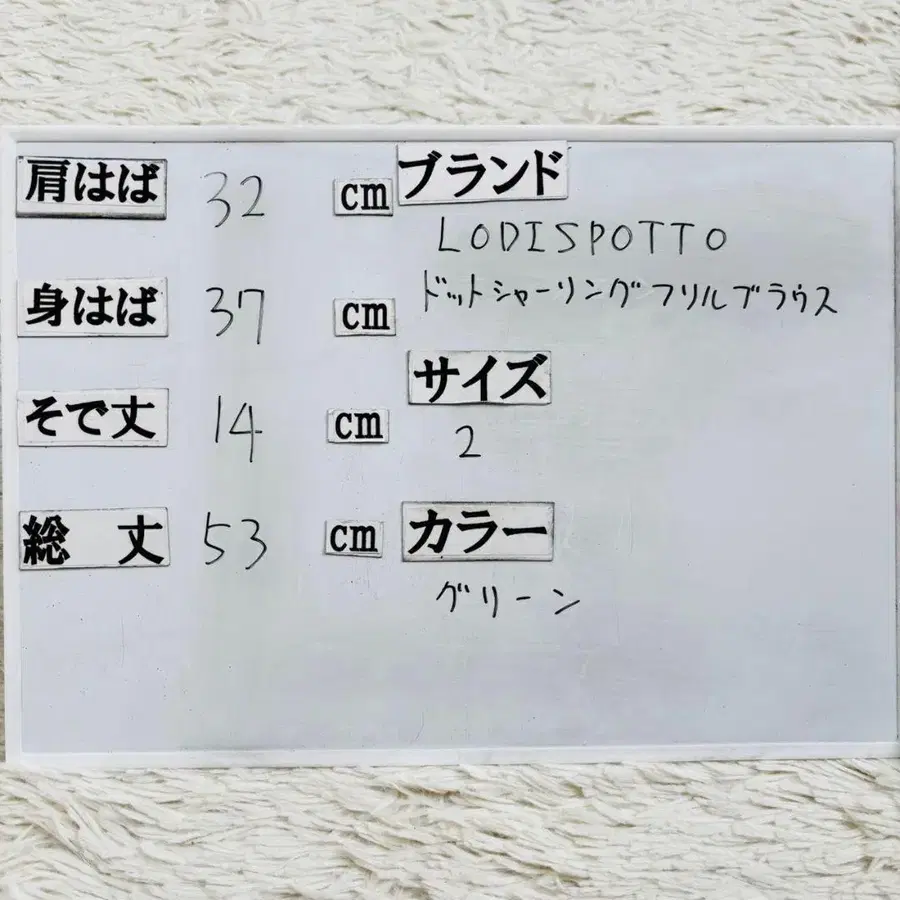 肩はば 32 cm
身はば 37 cm
そで丈 14 cm
総 丈 53 cm
ブランド
LODISPOTTO
ドットシャーリングフリルブラウス
サイズ
2
カラー
グリーン